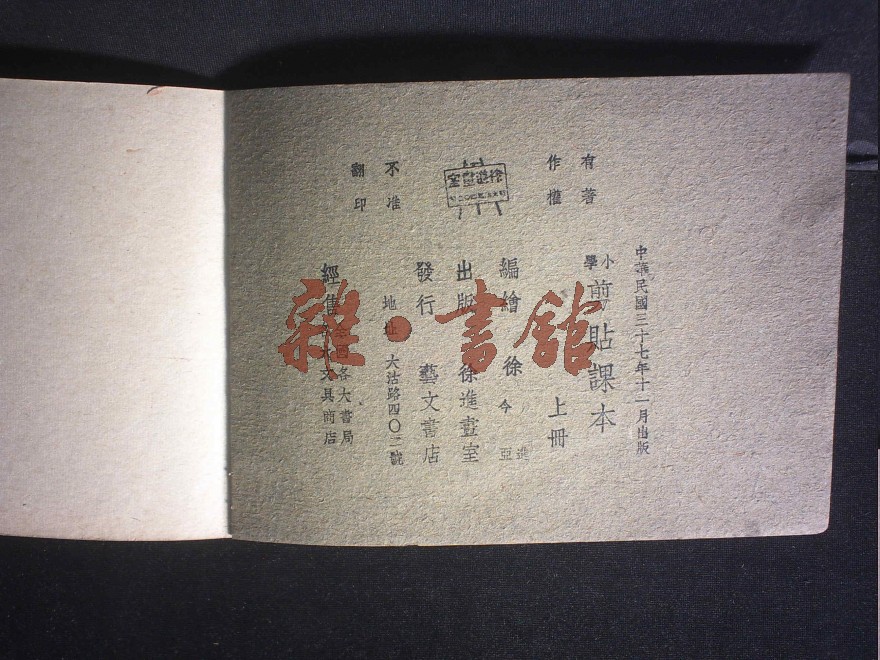 中華民國三十七年十一月出版
小學剪貼課本
上册
有著
作權
編繪 徐 進
今亞
出版 徐進畫室
發行 藝文書店
地址 大沽路四〇二號
不准
翻印
經售 全國各大書局
文具商店
雜·書館